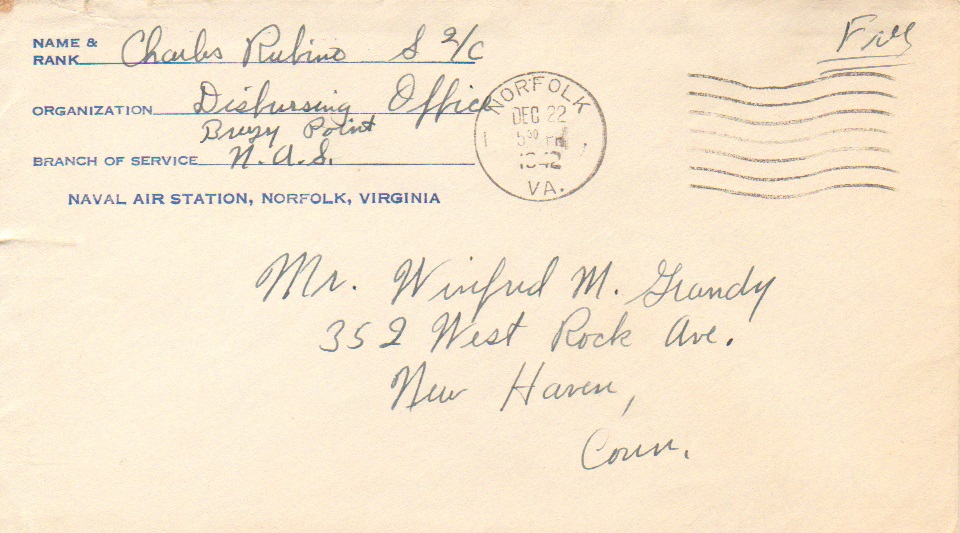 NAME & RANK Charles Rubino S 2/C
Free
ORGANIZATION Disbursing Office
Breezy Point
BRANCH OF SERVICE N.A.S.
NAVAL AIR STATION, NORFOLK, VIRGINIA
NORFOLK
DEC 22
5 30 PM
1942
VA.
Mr. Winfred M. Grandy
352 West Rock Ave.
New Haven,
Conn.